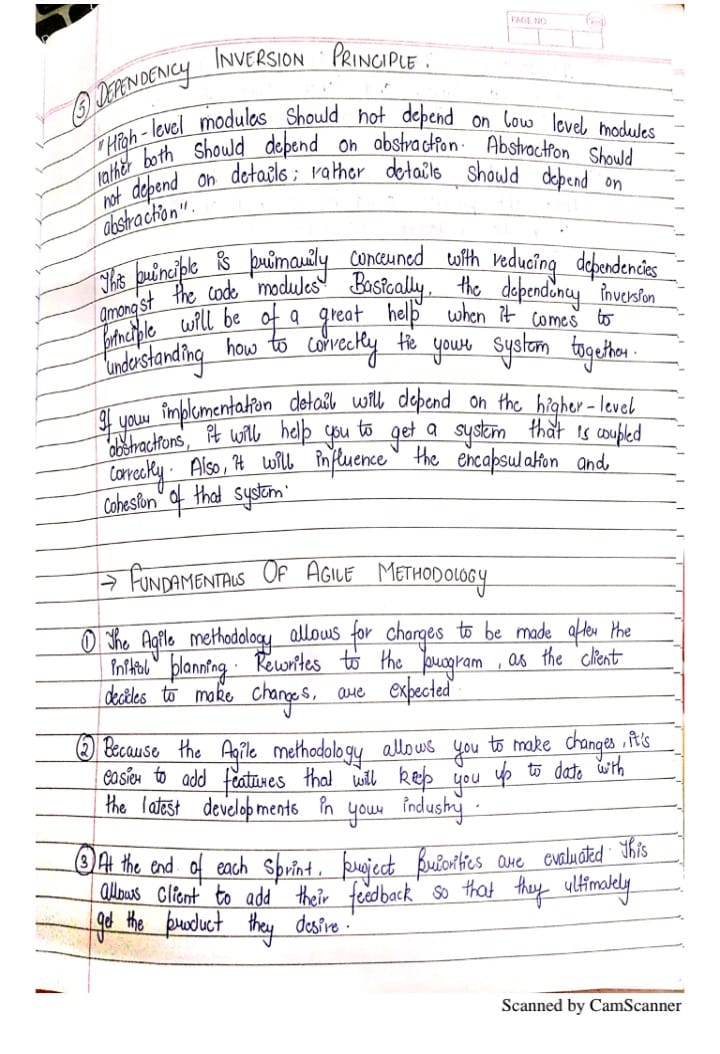 PAGE NO
⑤ DEPENDENCY INVERSION PRINCIPLE :
"High-level modules should not depend on low level modules
rather both should depend on abstraction. Abstraction should
not depend on details; rather details should depend on
abstraction".
This principle is primarily concerned with reducing dependencies
amongst the code modules. Basically, the dependency inversion
principle will be of a great help when it comes to
understanding how to correctly tie your system together.
If your implementation detail will depend on the higher-level
abstractions, it will help you to get a system that is coupled
correctly. Also, it will influence the encapsulation and
cohesion of that system.
→ FUNDAMENTALS OF AGILE METHODOLOGY
① The Agile methodology allows for changes to be made after the
initial planning. Rewrites to the program, as the client
decides to make changes, are expected.
② Because the Agile methodology allows you to make changes, it's
easier to add features that will keep you up to date with
the latest developments in your industry.
③ At the end of each sprint, project priorities are evaluated. This
allows client to add their feedback so that they ultimately
get the product they desire.
Scanned by CamScanner